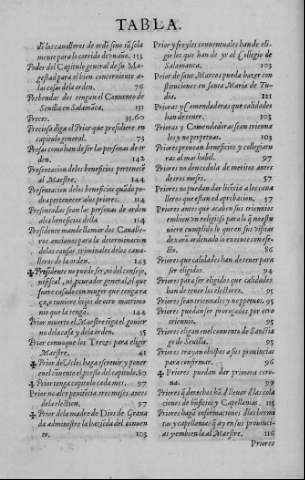 TABLA.
di los caualleros de ordẽ sino tã sola
mente para la corrida de mañã. 133
Poder del Capitulo general de su Ma-
gestad para el bien concerniente a
las cosas de la orden. 76
Prebendar dos tengan el Conuento de
Seuilla en Salamãca. 131
Preces. 35.60
Preciosa diga el Prior que presidiere en
capitulo general. 73
Presas como han de ser las personas de or
den. 142
Presentacion de los beneficios pertenece
al Maestre. 144
Presentacion de los beneficios quãdo po
dra pertenecer a los priores. 114
Presentadas sean las personas de orden
a los beneficios della 114
Presidente mande llamar dos Caualle-
ros ancianos para la determinacion
de las causas criminales de los caua-
lleros de la orden. 143
Presidente no puede ser, ni del consejo,
ni fiscal, ni procurador general, el que
fuere casado con muger que tenga ra
ça, o tuuiere hijos de otro matrimo
nio que la tenga. 144
Prior muerto el Maestre tẽga el gouier
no de la casa y de la orden. 35
Prior conuoque los Trezes para eligir
Maestre. 41
Prior de Vcles haga escreuir y poner
en el conuento el processo del capitulo. 80
Prior tenga capitulo cada mes. 97
Prior no sea por tiẽpo de tres meses antes
de la election. 97
Prior de la madre de Dios de Grana
da administre la hazienda del conuen
to. 103
Prior y freyles conuentuales han de eli
gir los que han de yr al Collegio de
Salamanca. 103
Prior de sant Marcos pueda hazer con
stituciones en sancta Maria de Tu-
dia. 121
Prioras y Comendadoras que calidades
han de tener. 103
Prioras y Comendadoras sean trienna
les y no perpetuas. 103
Priores prouean beneficios y collegiatu
ras al mas habil. 97
Priores no den cedula de meritos antes
de tres meses. 57
Priores no puedan dar licẽcia a los caua
lleros que estan en aprobacion. 57
Priores antes que acaben sus trienios
embien vn religioso para lo q̃ no estu
uiere cumplido lo que en sus visitas
dexarõ ordenado lo execute con efe-
cto. 86
Priores que calidades han de tener para
ser eligidos. 94
Priores para ser eligidos que calidades
han de tener los electores. 95
Priores sean triennales y no perpetuos. 95
Priores puedan ser prorogados por otro
triennio. 95
Priores elijan en el conuento de Sanctia
go de Seuilla. 95
Priores trayan obispos a sus prouincias
para confirmar. 96
Priores puedan dar primera coro-
na. 99
Priores q̃ derechos hã de lleuar de las cola
ciones de bñficios y Capellanias. 115
Priores hayã informaciones de las hermi
tas y capellanias q̃ ay en sus prouinci
as y embienla al Maestre. 116
Priores